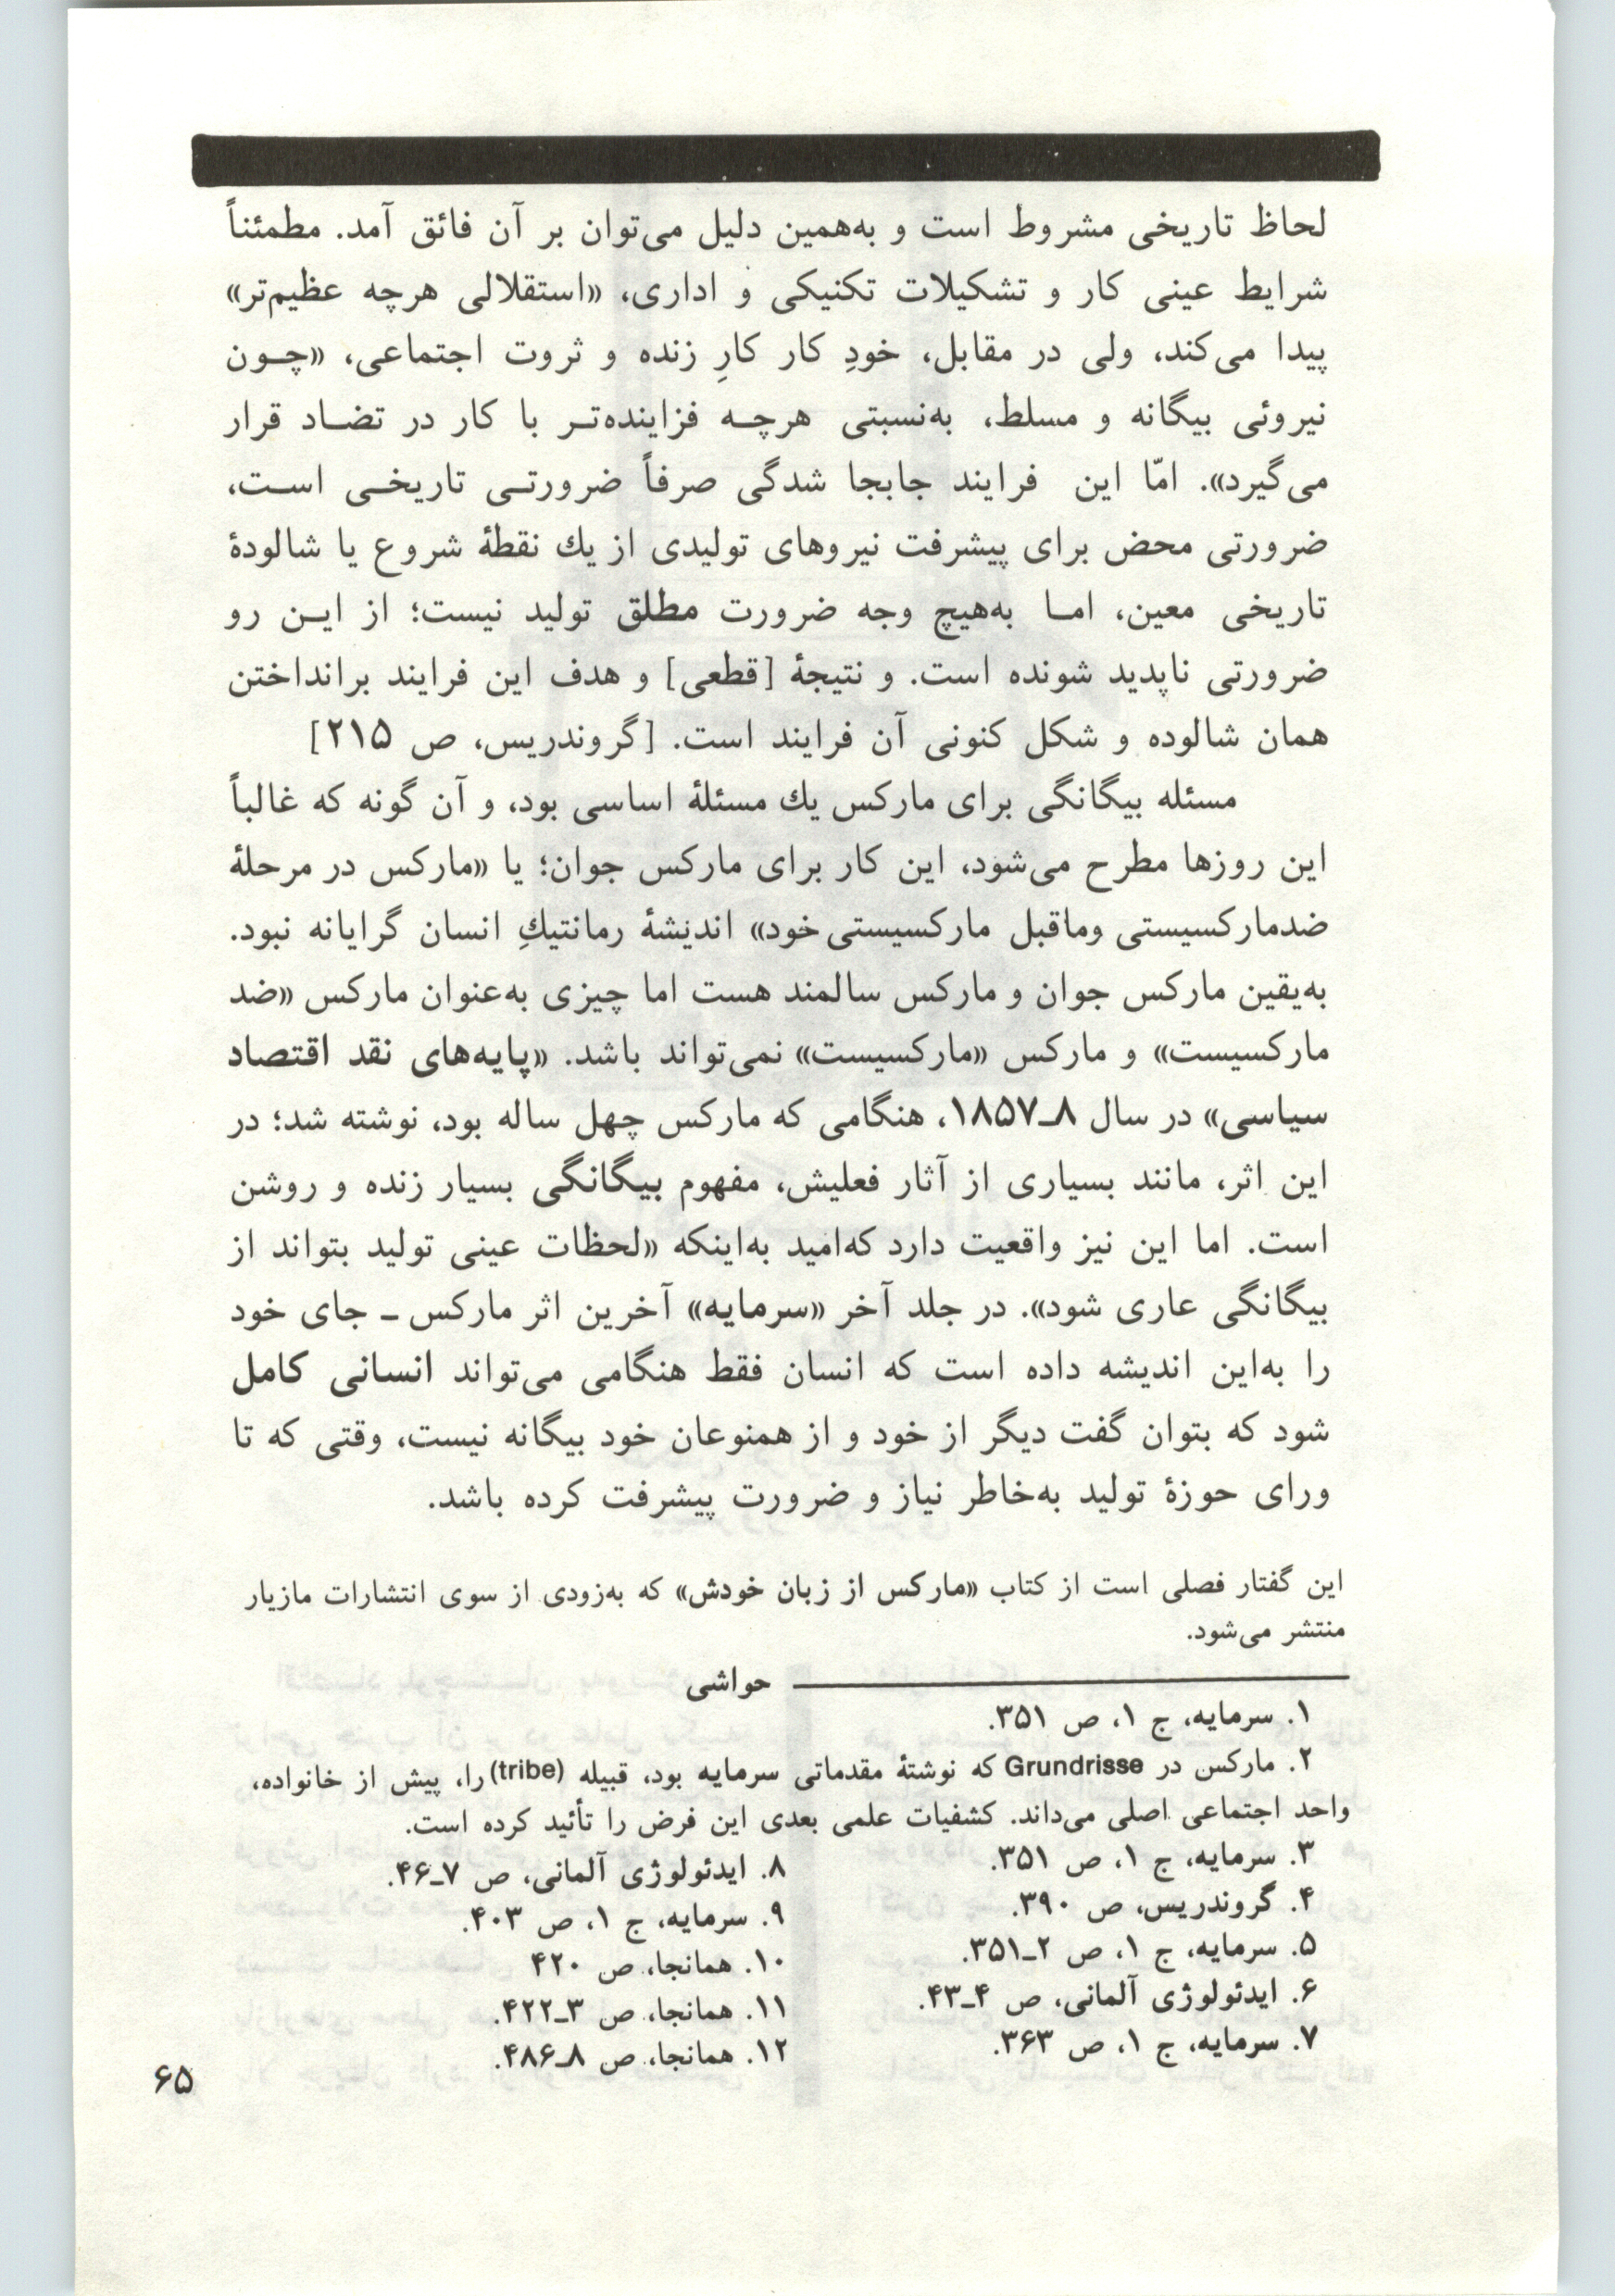 لحاظ تاریخی مشروط است و به‌همین دلیل می‌توان بر آن فائق آمد. مطمئناً
شرایط عینی کار و تشکیلات تکنیکی و اداری، «استقلالی هرچه عظیم‌تر»
پیدا می‌کند، ولی در مقابل، خودِ کار کارِ زنده و ثروت اجتماعی، «چـون
نیروئی بیگانه و مسلط، به‌نسبتی هرچـه فزاینده‌تـر با کار در تضـاد قرار
می‌گیرد». امّا این فرایند جابجا شدگی صرفاً ضرورتـی تاریخـی اسـت،
ضرورتی محض برای پیشرفت نیروهای تولیدی از یك نقطهٔ شروع یا شالودهٔ
تاریخی معین، امـا به‌هیچ وجه ضرورت مطلق تولید نیست؛ از ایـن رو
ضرورتی ناپدید شونده است. و نتیجهٔ [قطعی] و هدف این فرایند برانداختن
همان شالوده و شکل کنونی آن فرایند است. [گروندریس، ص ۲۱۵]
مسئله بیگانگی برای مارکس یك مسئلهٔ اساسی بود، و آن گونه که غالباً
این روزها مطرح می‌شود، این کار برای مارکس جوان؛ یا «مارکس در مرحلهٔ
ضدمارکسیستی وماقبل مارکسیستی خود» اندیشهٔ رمانتیكِ انسان گرایانه نبود.
به‌یقین مارکس جوان و مارکس سالمند هست اما چیزی به‌عنوان مارکس «ضد
مارکسیست» و مارکس «مارکسیست» نمی‌تواند باشد. «پایه‌های نقد اقتصاد
سیاسی» در سال ۸ـ۱۸۵۷، هنگامی که مارکس چهل ساله بود، نوشته شد؛ در
این اثر، مانند بسیاری از آثار فعلیش، مفهوم بیگانگی بسیار زنده و روشن
است. اما این نیز واقعیت دارد که‌امید به‌اینکه «لحظات عینی تولید بتواند از
بیگانگی عاری شود». در جلد آخر «سرمایه» آخرین اثر مارکس ـ جای خود
را به‌این اندیشه داده است که انسان فقط هنگامی می‌تواند انسانی کامل
شود که بتوان گفت دیگر از خود و از همنوعان خود بیگانه نیست، وقتی که تا
ورای حوزهٔ تولید به‌خاطر نیاز و ضرورت پیشرفت کرده باشد.
این گفتار فصلی است از کتاب «مارکس از زبان خودش» که به‌زودی از سوی انتشارات مازیار
منتشر می‌شود.
حواشی
۱. سرمایه، ج ۱، ص ۳۵۱.
۲. مارکس در Grundrisse که نوشتهٔ مقدماتی سرمایه بود، قبیله (tribe) را، پیش از خانواده،
واحد اجتماعی اصلی می‌داند. کشفیات علمی بعدی این فرض را تأئید کرده است.
۳. سرمایه، ج ۱، ص ۳۵۱.
۴. گروندریس، ص ۳۹۰.
۵. سرمایه، ج ۱، ص ۲ـ۳۵۱.
۶. ایدئولوژی آلمانی، ص ۴ـ۴۳.
۷. سرمایه، ج ۱، ص ۳۶۳.
۸. ایدئولوژی آلمانی، ص ۷ـ۴۶.
۹. سرمایه، ج ۱، ص ۴۰۳.
۱۰. همانجا، ص ۴۲۰
۱۱. همانجا، ص ۳ـ۴۲۲.
۱۲. همانجا، ص ۸ـ۴۸۶.
۶۵